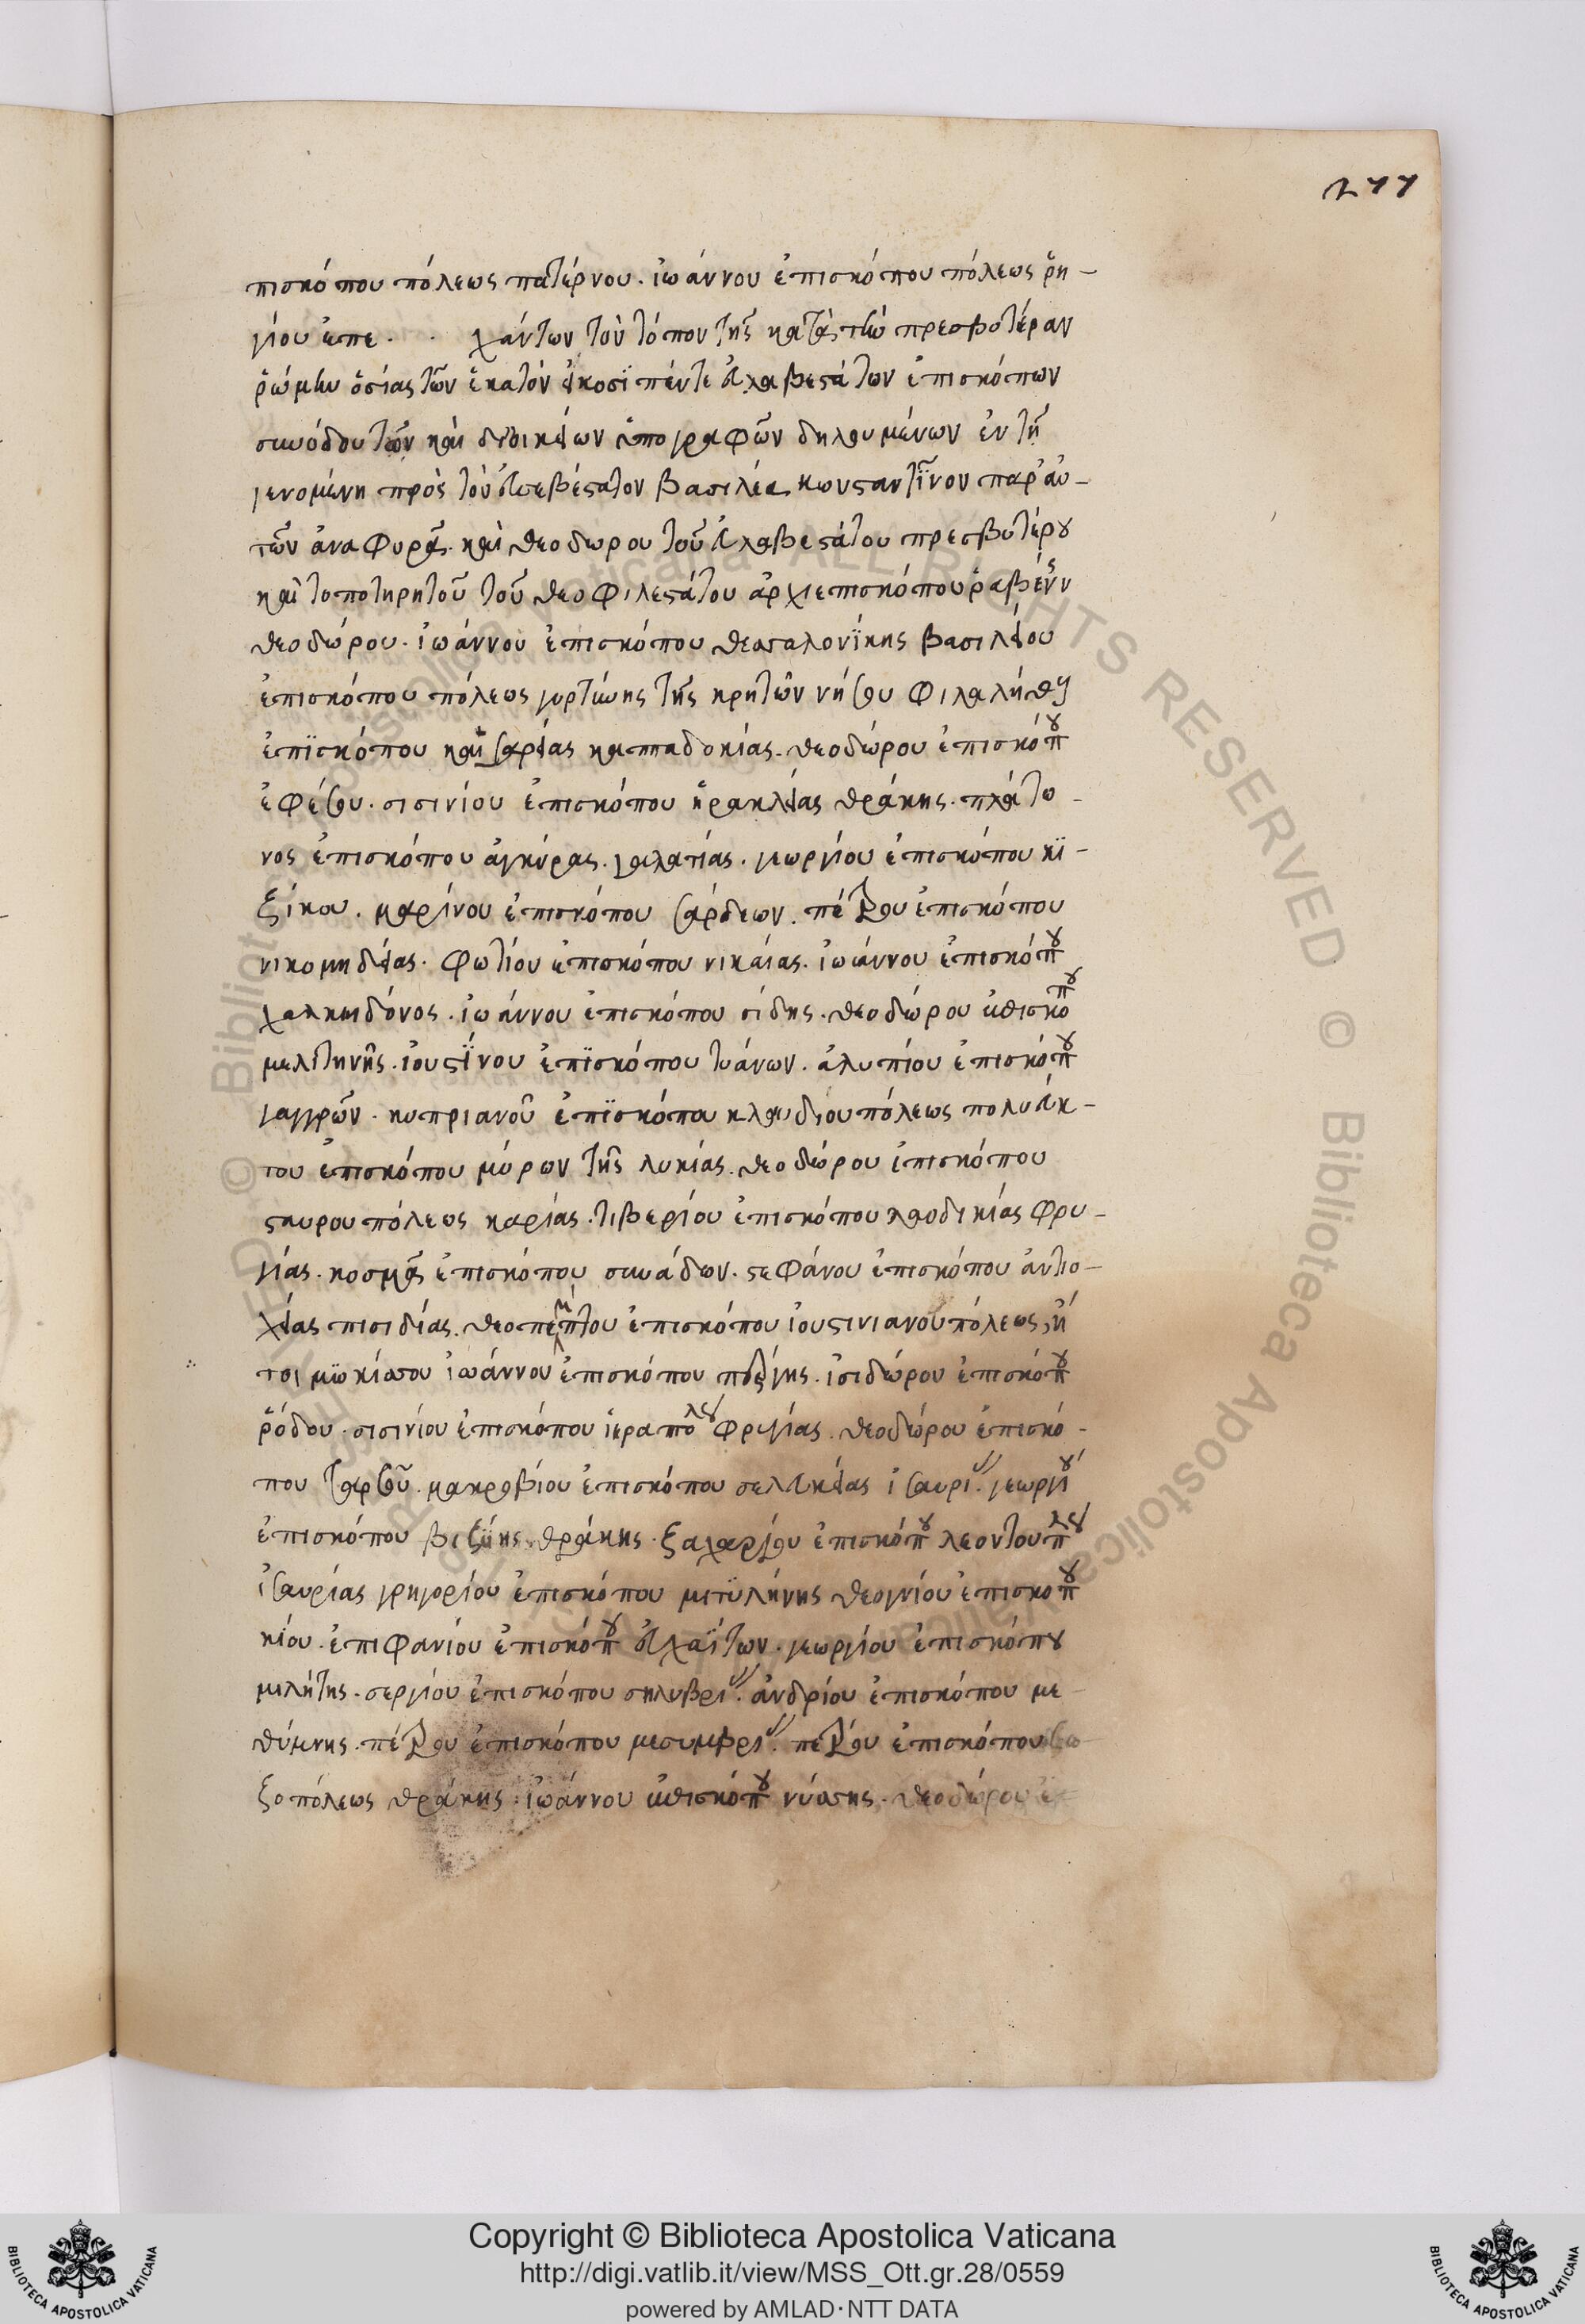 277
πισκόπου πόλεως πατέρνου. ἰωάννου ἐπισκόπου πόλεως ῥη-
γίου ἐπε. . χόντων τὸν τόπον τῆς κατὰ τὴν πρεσβυτέραν
ῥώμην ὁσίας τῶν ἑκατὸν εἰκοσϊπέντε εὐλαβεστάτων ἐπισκόπων
συνόδου τῶν καὶ δι' οἰκείων ὑπογραφῶν δηλουμένων ἐν τῇ
γενομένη πρὸς τὸν εὐσεβέστατον βασιλέα κωνσταντῖνον παρ' αὐ-
τῶν ἀναφυρᾷ. καὶ θεοδωρου τοῦ εὐλαβεστάτου πρεσβυτέρου
καὶ τοποτηρητοῦ τοῦ θεοφιλεστάτου ἀρχιεπισκόπου ῥαβέννης
θεοδώρου. ἰωάννου ἐπισκόπου θεσσαλονίκης βασιλείου
ἐπισκόπου πόλεως γορτύνης τῆς κρητῶν νήσου φιλαλήθους
ἐπϊσκόπου καισαρείας καππαδοκίας. θεοδώρου ἐπισκόπου
ἐφέσου. σισινίου ἐπισκόπου ἡρακλείας θράκης. πλάτω-
νος ἐπισκόπου ἀγκύρας. γαλατίας. γεωργίου ἐπισκόπου κϊ-
ξίκου. μαρίνου ἐπισκόπου σάρδεων. πέτρου ἐπισκόπου
νικομηδείας. φωτίου ἐπισκόπου νικαίας. ἰωάννου ἐπισκόπου
χαλκηδόνος. ἰωάννου ἐπισκόπου σίδης. θεοδώρου ἐπισκόπου
μελιτηνῆς. ἰουστίνου ἐπϊσκόπου τυάνων. ἀλυπίου ἐπισκόπου
γαγγρῶν. κυπριανοῦ ἐπϊσκόπου κλαυδιουπόλεως πολυεύκ-
του ἐπισκόπου μύρων τῆς λυκίας. θεοδώρου ἐπισκόπου
σταυρουπόλεως καρίας. τιβερίου ἐπισκόπου λαοδικίας φρυ-
γίας. κοσμᾶ ἐπισκόπου συνάδων. στεφάνου ἐπισκόπου ἀντιο-
χείας πισιδίας. θεοπέμπτου ἐπισκόπου ἰουστινιανουπόλεως, ἤ
τοι μωκισσου ἰωάννου ἐπισκόπου πέργης. ἰσιδώρου ἐπισκόπου
ῥόδου. σισινίου ἐπισκόπου ἱεραπόλεως φριγίας. θεοδώρου ἐπισκό-
που ταρσοῦ. μακροβίου ἐπισκόπου σελευκείας ἰσαυρίας. γεωργίου
ἐπισκόπου βιζύης θράκης. ξαχαρίου ἐπισκόπου λεοντουπόλεως
ἰσαυρίας γρηγορίου ἐπισκόπου μιτϋλήνης θεογνίου ἐπισκόπου
κίου. ἐπιφανίου ἐπισκόπου εὐχαΐτων. γεωργίου ἐπισκόπου
μιλήτης. σεργίου ἐπισκόπου σηλυβρίας. ἀνδρίου ἐπισκόπου με-
θύμνης. πέτρου ἐπισκόπου μεσυμβρίας. πέτρου ἐπισκόπου σω-
ξοπόλεως θράκης. ἰωάννου ἐπισκόπου νύσσης. θεοδώρου ἐπ
© Biblioteca Apostolica Vaticana ALL RIGHTS RESERVED
Copyright © Biblioteca Apostolica Vaticana
http://digi.vatlib.it/view/MSS_Ott.gr.28/0559
powered by AMLAD·NTT DATA
BIBLIOTECA APOSTOLICA VATICANA
BIBLIOTECA APOSTOLICA VATICANA